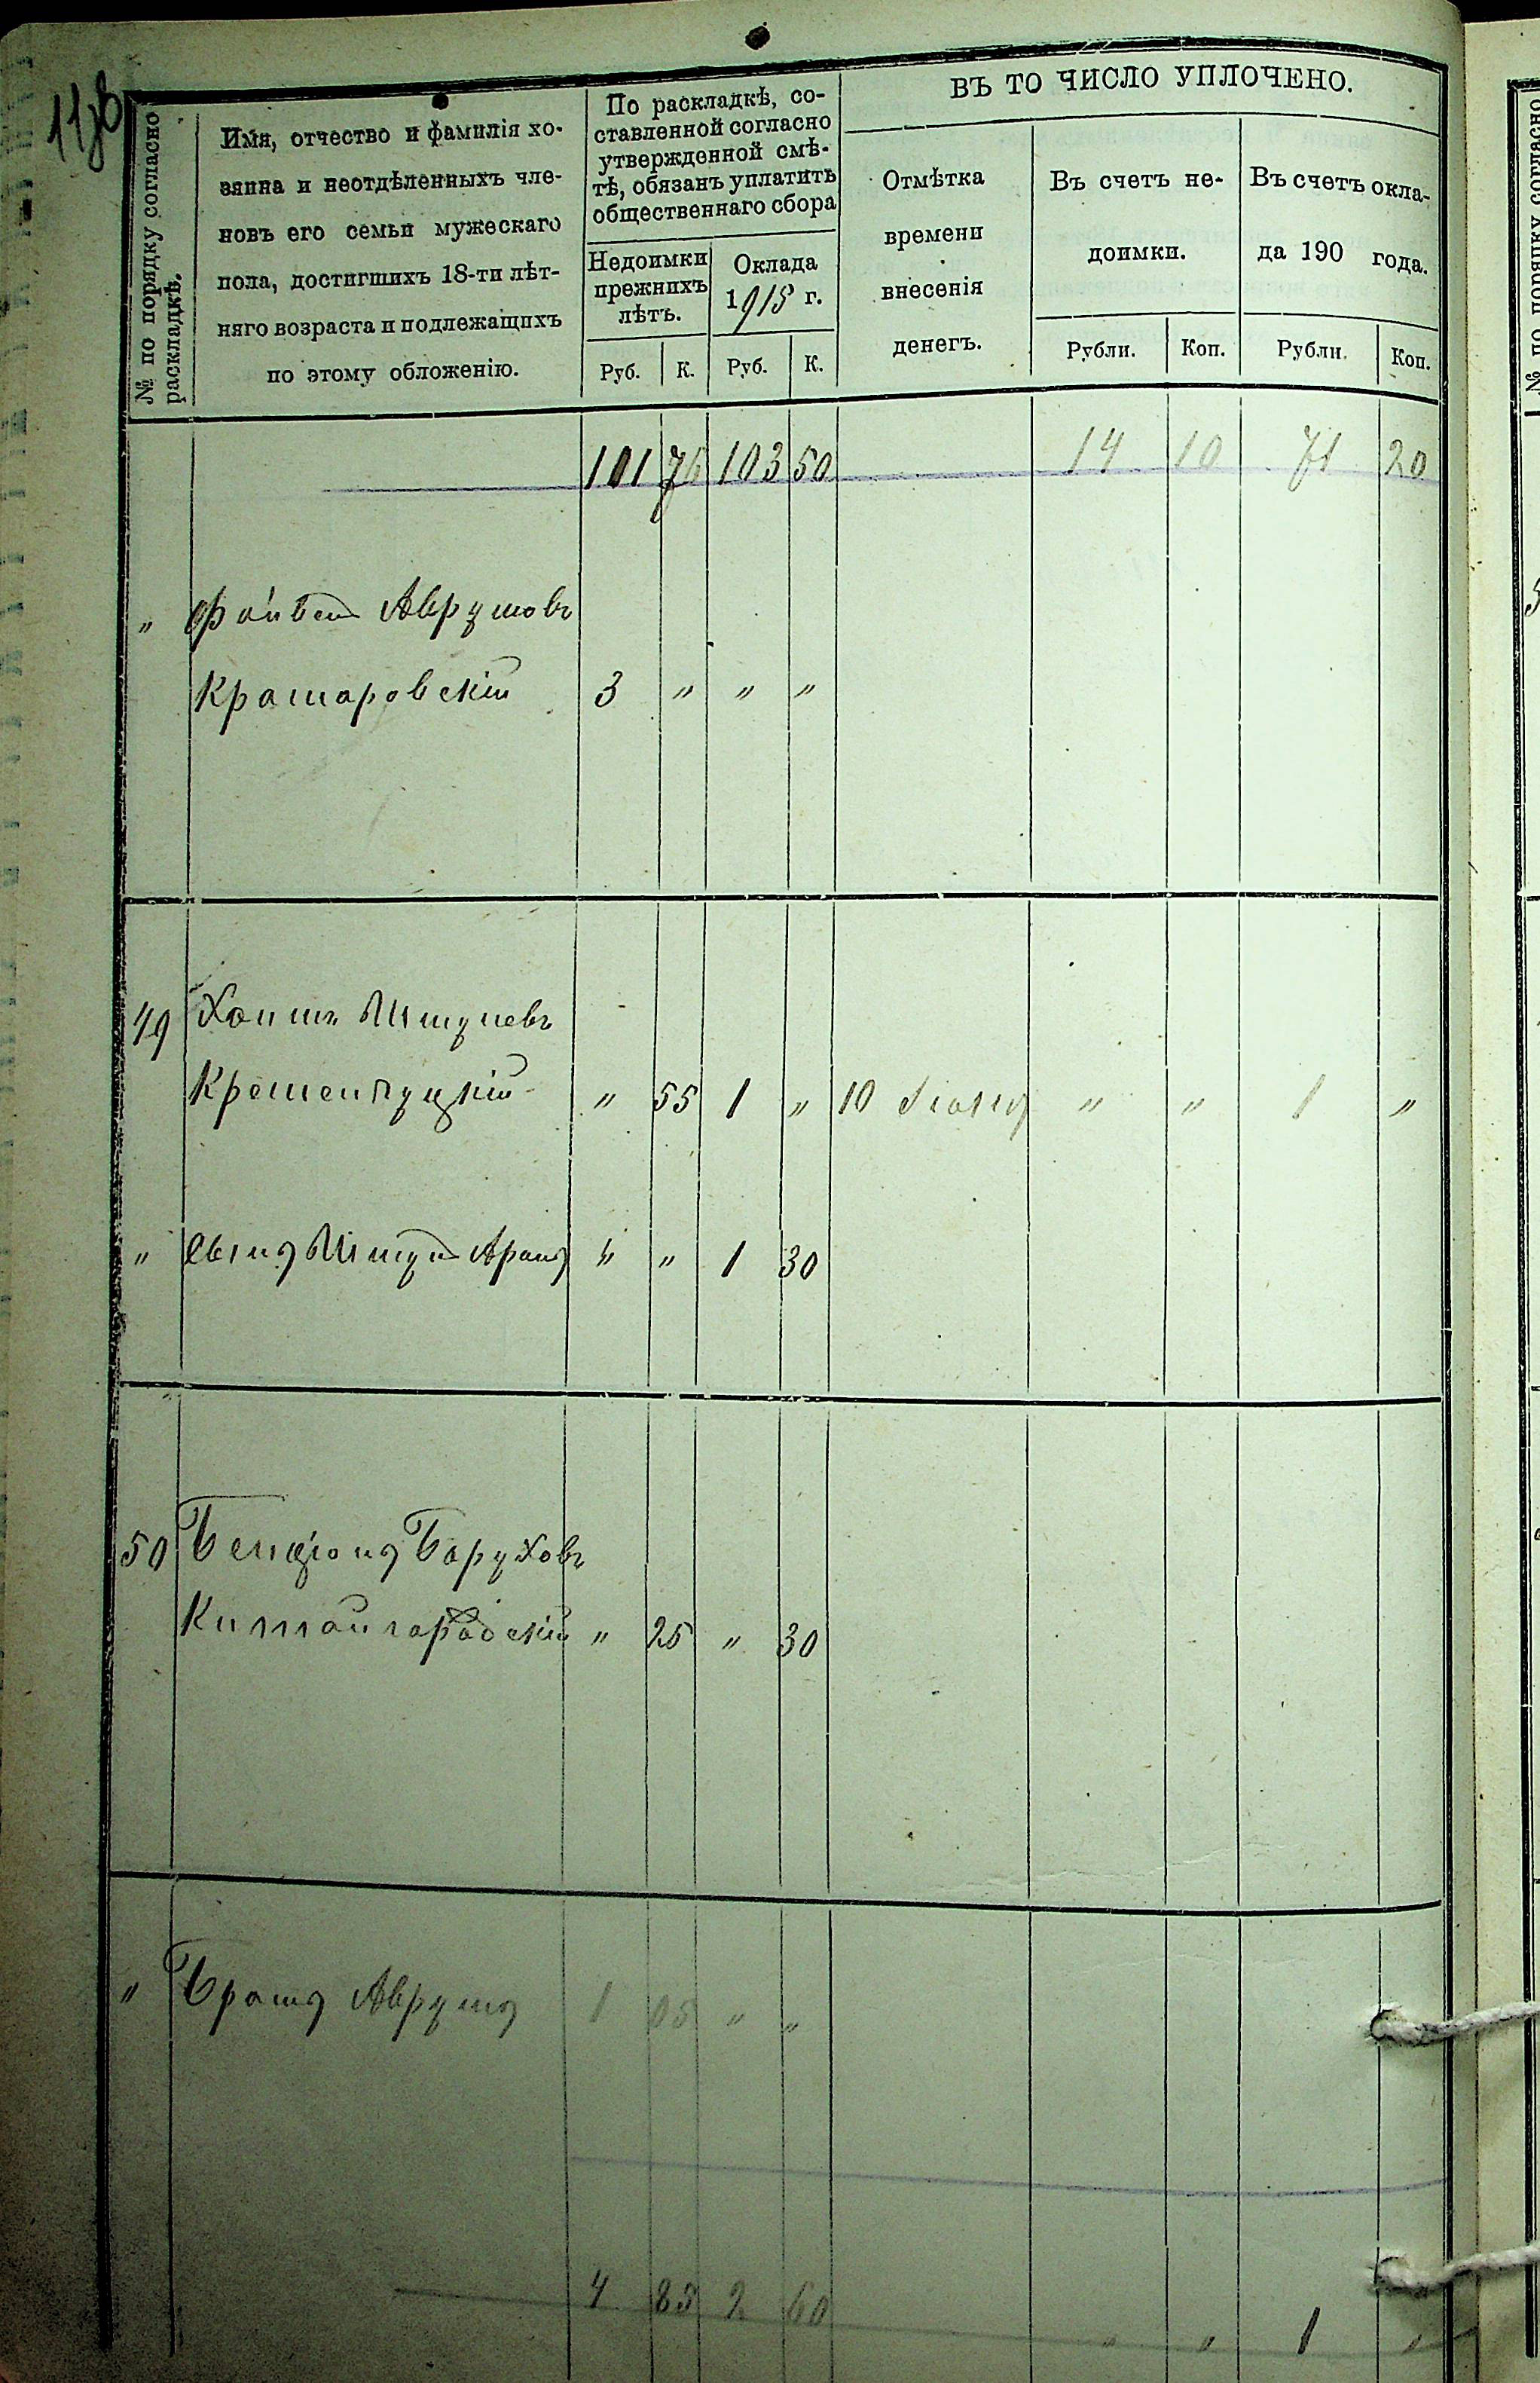 № по порядку согласно раскладкѣ.
Имя, отчество и фамилія хо-
зяина и неотдѣленныхъ чле-
новъ его семьи мужескаго
пола, достигшихъ 18-ти лѣт-
няго возраста и подлежащихъ
по этому обложенію.
По раскладкѣ, со-
ставленной согласно
утвержденной смѣ-
тѣ, обязанъ уплатить
общественнаго сбора
Недоимки
прежнихъ
лѣтъ.
Оклада
1915 г.
Руб. К. Руб. К.
ВЪ ТО ЧИСЛО УПЛОЧЕНО.
Отмѣтка
времени
внесенія
денегъ.
Въ счетъ не-
доимки.
Рубли. Коп.
Въ счетъ окла-
да 190 года.
Рубли. Коп.
101 76 103 50 14 10 71 20
" Файвель Аврумовъ
Крамаровскій 3 " " "
49 Хаимъ Шмулевъ
Кременчуцкій " 55 1 " 10 " " 1 "
" Сынъ Шмуль Аронъ " " 1 30
50 Бенціонъ Баруховъ
Китайгородскій " 25 " 30
" Братъ Аврумъ 1 05 " "
4 85 2 60 " " 1 "